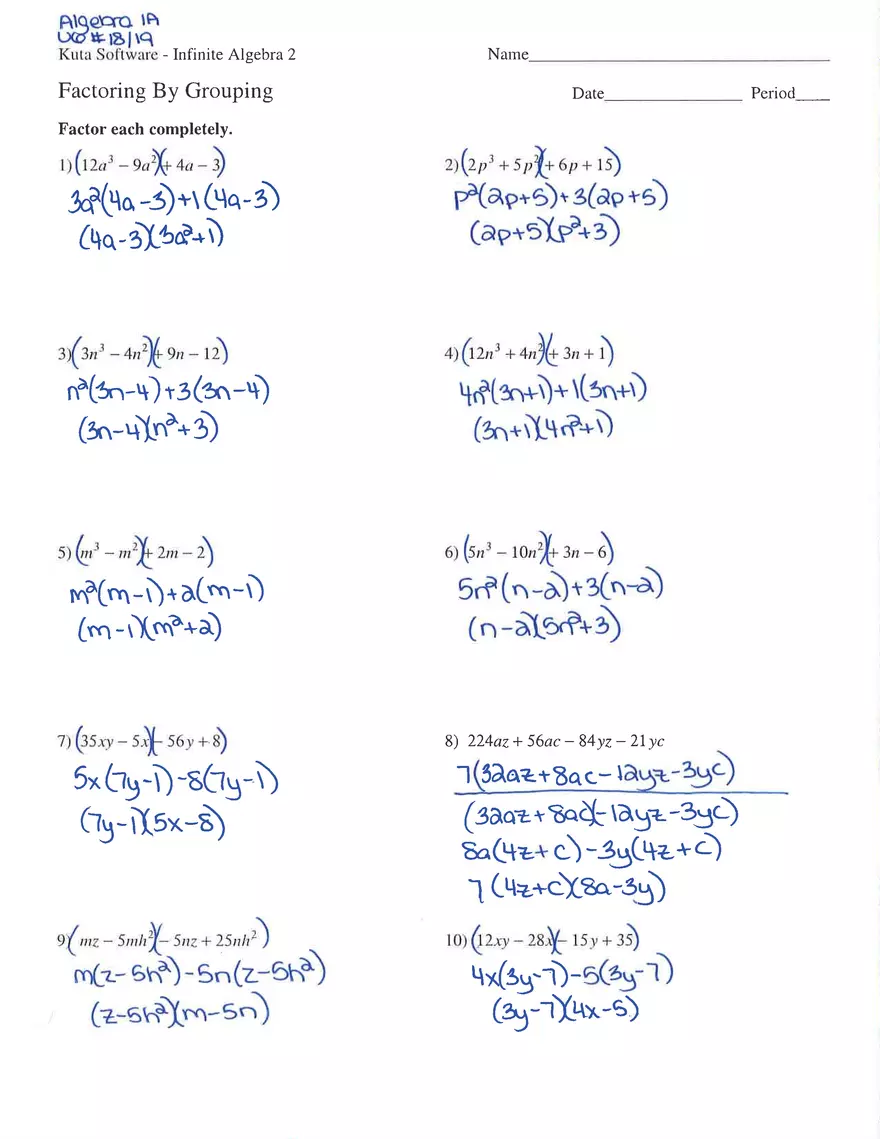 Algebra 1A
WS #18/19
Kuta Software - Infinite Algebra 2 Name
Factoring By Grouping Date Period
Factor each completely.
1) (12a³ − 9a²)(+ 4a − 3)
3a²(4a-3)+1(4a-3)
(4a-3)(3a²+1)
2) (2p³ + 5p²)(+ 6p + 15)
p²(2p+5)+3(2p+5)
(2p+5)(p²+3)
3) (3n³ − 4n²)(+ 9n − 12)
n²(3n-4)+3(3n-4)
(3n-4)(n²+3)
4) (12n³ + 4n²)(+ 3n + 1)
4n²(3n+1)+1(3n+1)
(3n+1)(4n²+1)
5) (m³ − m²)(+ 2m − 2)
m²(m-1)+2(m-1)
(m-1)(m²+2)
6) (5n³ − 10n²)(+ 3n − 6)
5n²(n-2)+3(n-2)
(n-2)(5n²+3)
7) (35xy − 5x)(− 56y + 8)
5x(7y-1)-8(7y-1)
(7y-1)(5x-8)
8) 224az + 56ac − 84yz − 21yc
7(32az+8ac-12yz-3yc)
(32az+8ac)(-12yz-3yc)
8a(4z+c)-3y(4z+c)
7(4z+c)(8a-3y)
9) (mz − 5mh²)(− 5nz + 25nh²)
m(z-5h²)-5n(z-5h²)
(z-5h²)(m-5n)
10) (12xy − 28x)(− 15y + 35)
4x(3y-7)-5(3y-7)
(3y-7)(4x-5)